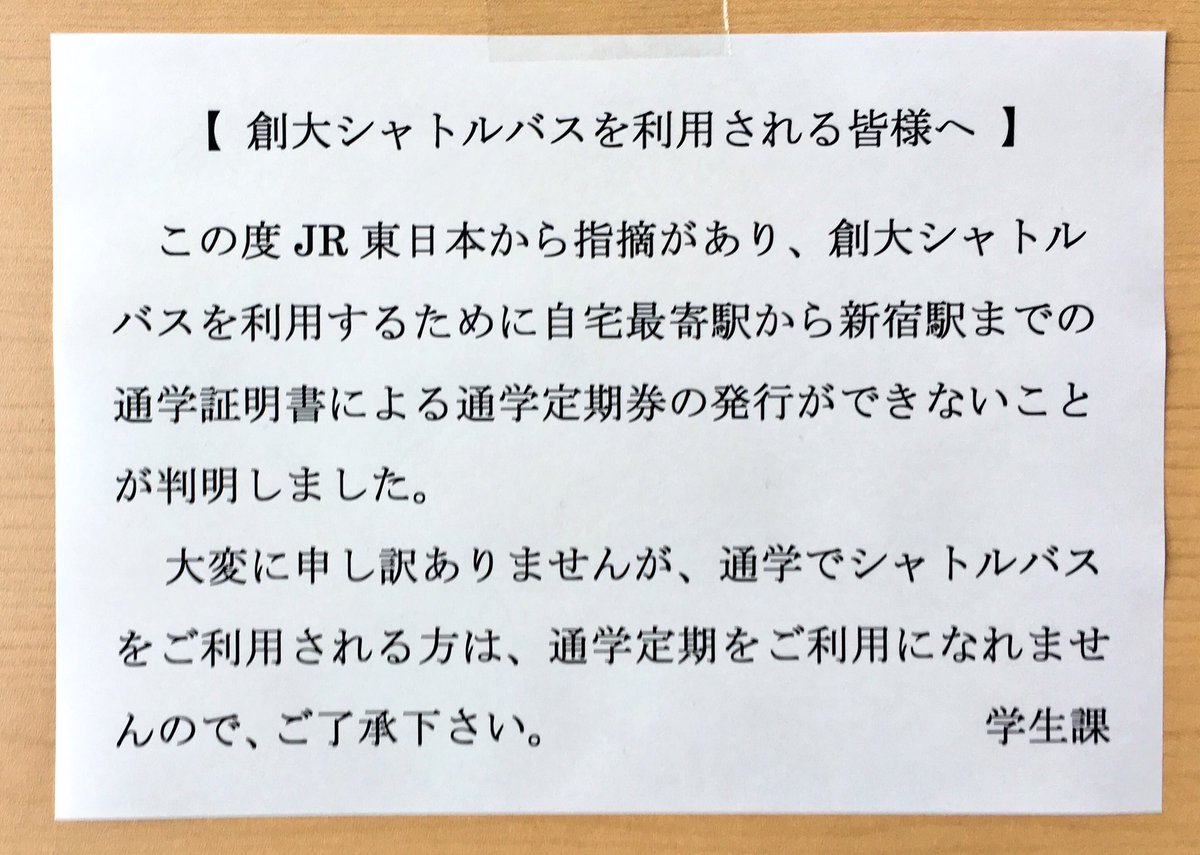 【 創大シャトルバスを利用される皆様へ 】
この度 JR 東日本から指摘があり、創大シャトル
バスを利用するために自宅最寄駅から新宿駅までの
通学証明書による通学定期券の発行ができないこと
が判明しました。
大変に申し訳ありませんが、通学でシャトルバス
をご利用される方は、通学定期をご利用になれませ
んので、ご了承下さい。 学生課